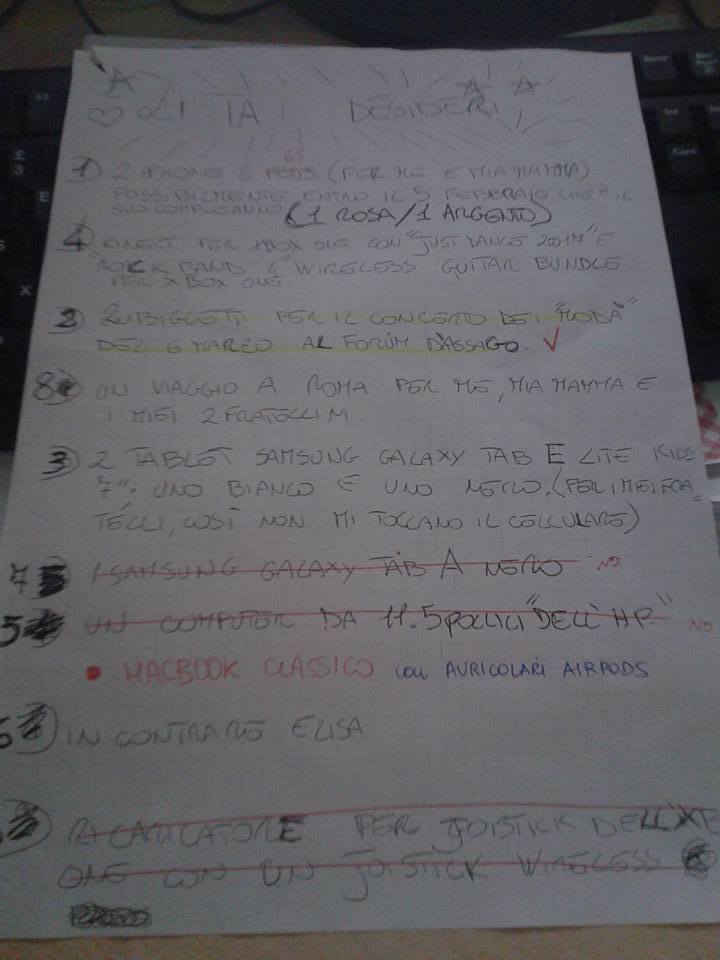 LI TA DESIDERI
1) 2 IPHONE 6 PLUS GS (PER ME E MIA MAMMA)
POSSIBILMENTE ENTRO IL 5 FEBBRAIO CHE È IL
SUO COMPLEANNO (1 ROSA/1 ARGENTO)
4 KINECT PER XBOX ONE CON "JUST DANCE 2014" E
"ROCK BAND 4" WIRELESS GUITAR BUNDLE
PER XBOX ONE.
2) BIGLIETTI PER IL CONCERTO DEI "MODÀ"
DEL 6 MARZO AL FORUM D'ASSAGO. √
8) UN VIAGGIO A ROMA PER ME, MIA MAMMA E
I MIEI 2 FRATELLINI.
3) 2 TABLET SAMSUNG GALAXY TAB E LITE KIDS
7". UNO BIANCO E UNO NERO. (PER I MIEI FRA_
TELLI, COSÌ NON MI TOCCANO IL CELLULARE)
7 1 SAMSUNG GALAXY TAB A NERO NO
5 UN COMPUTER DA 11.5 POLLICI "DELL'HP." NO
• MACBOOK CLASSICO CON AURICOLARI AIRPODS
6) INCONTRARE ELISA
RICARICATORE PER JOISTICK DELL'XB
ONE CON UN JOISTICK WIRELESS